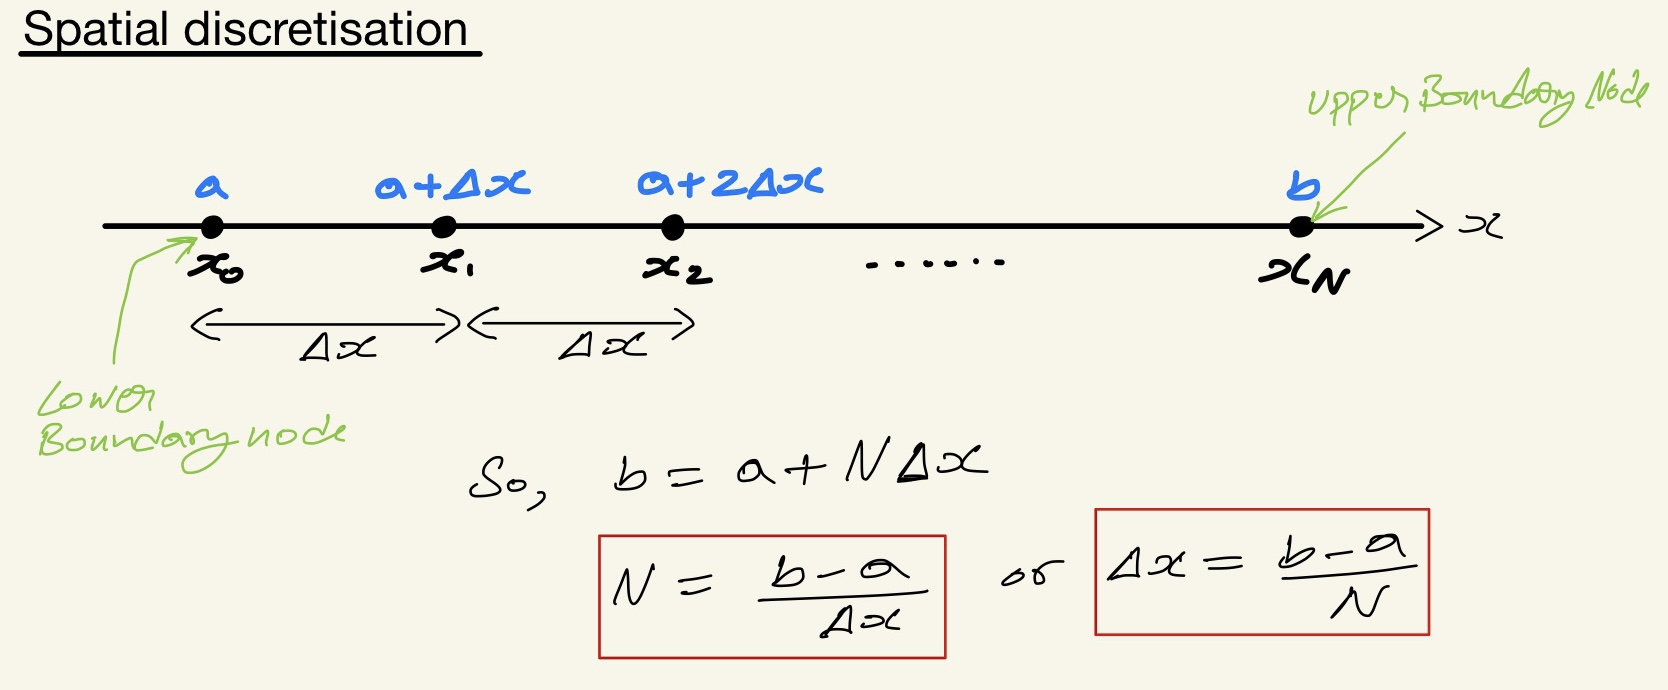 Spatial discretisation
upper Boundary Node
a a+Δx a+2Δx b
x
x₀ x₁ x₂ ...... x_N
Δx Δx
Lower
Boundary node
So, b = a + NΔx
N = (b-a)/Δx or Δx = (b-a)/N